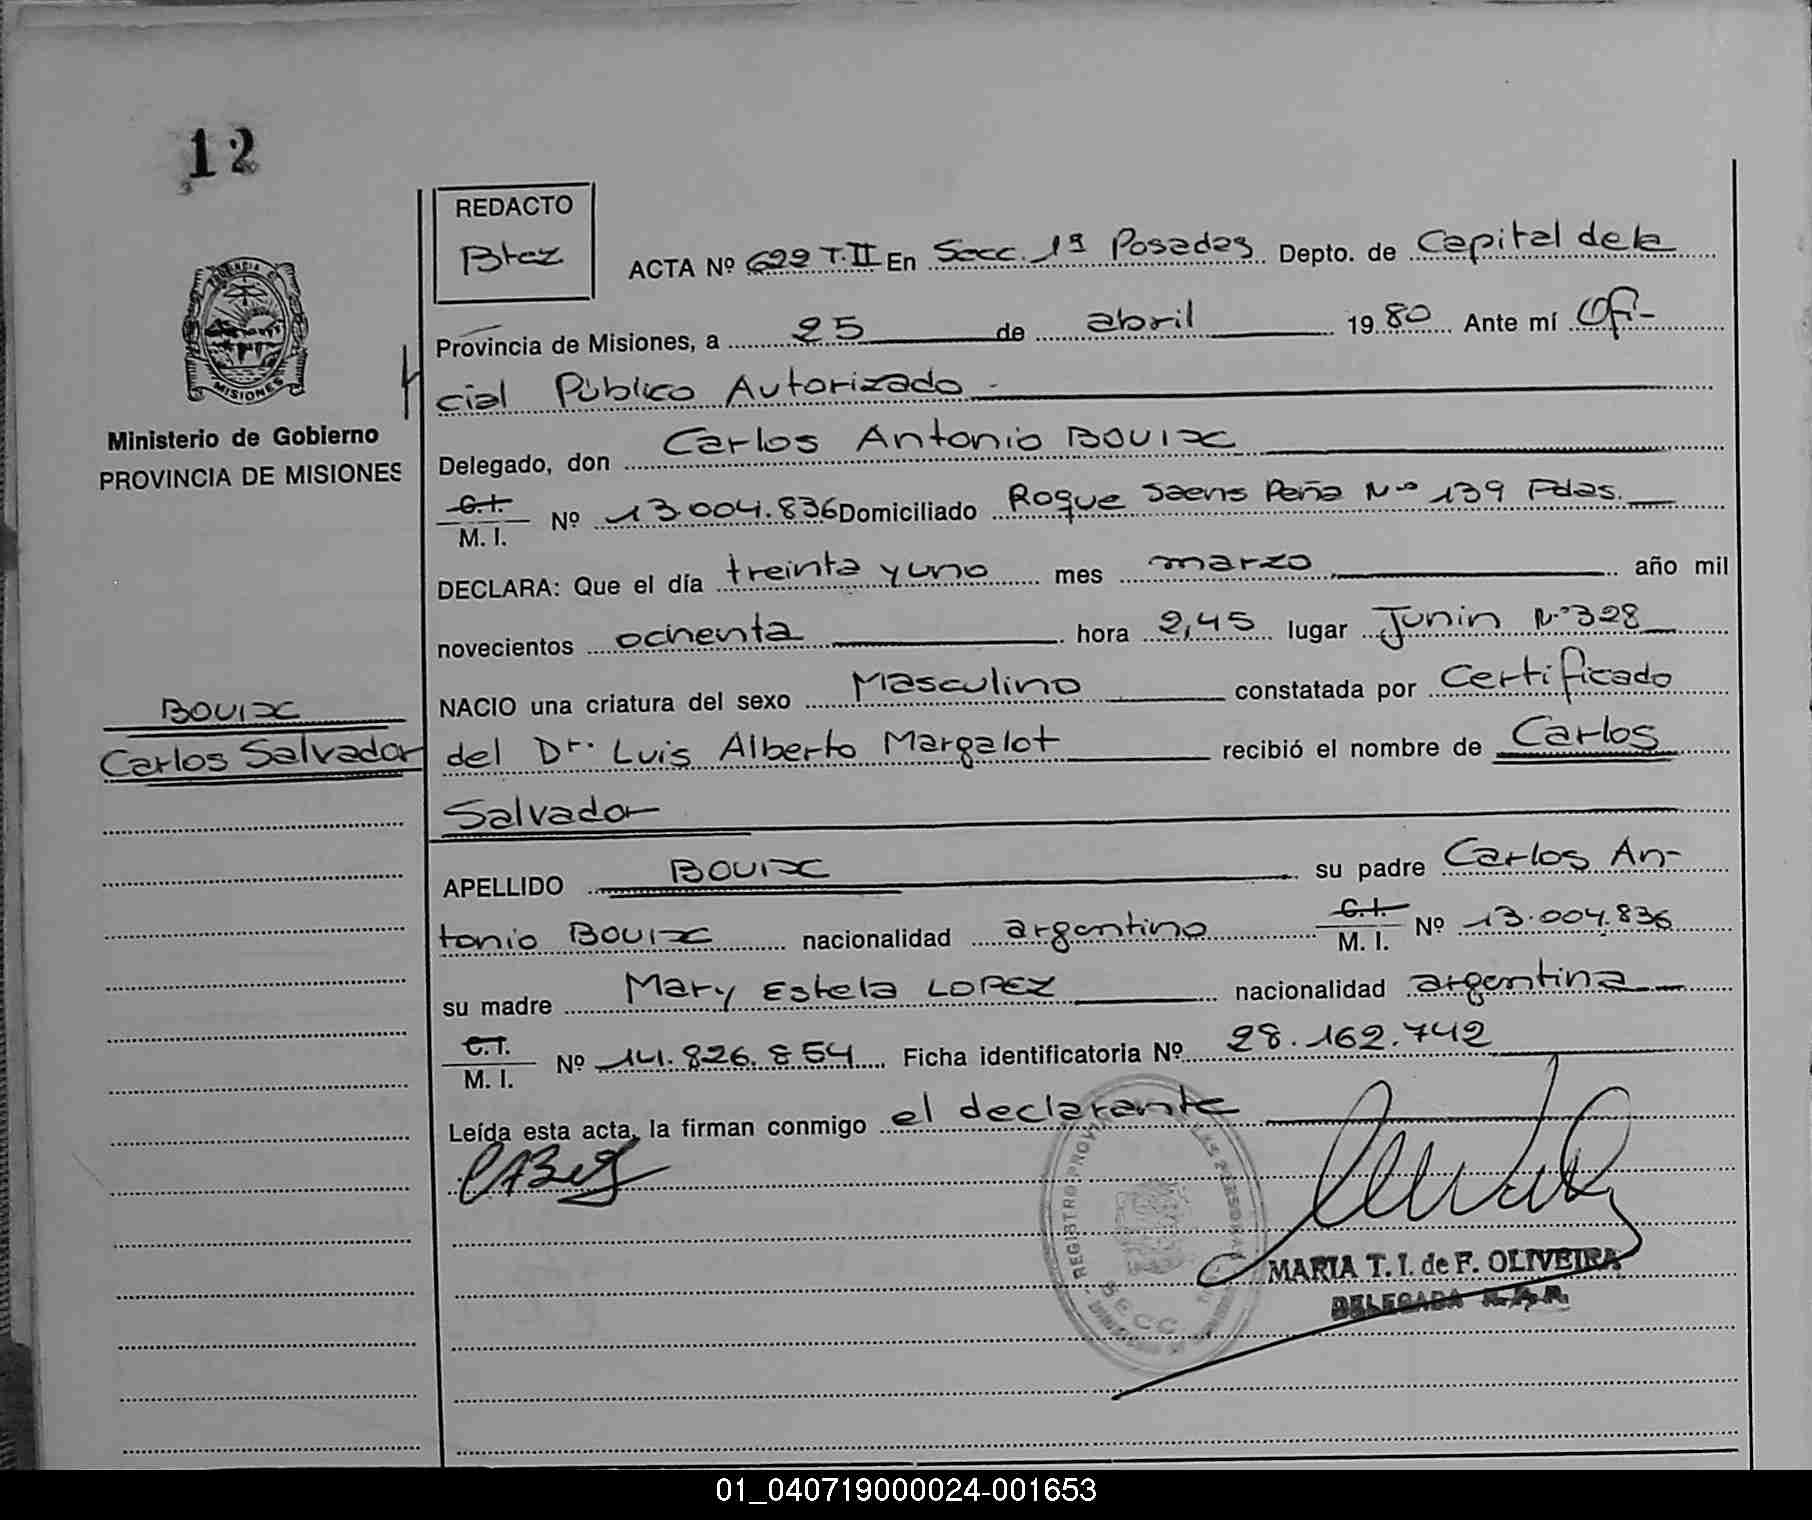 12
REDACTO
Btez
ACTA Nº 622 T.II En Secc. 1ª Posadas Depto. de Capital de la
Provincia de Misiones, a 25 de abril 1980 Ante mí Ofi-
cial Público Autorizado -
Ministerio de Gobierno
PROVINCIA DE MISIONES
MISIONES
Delegado, don Carlos Antonio BOUIX
C.I.
M. I. Nº 13.004.836 Domiciliado Roque Saens Peña Nº 139 Pdas.
DECLARA: Que el día treinta y uno mes marzo año mil
novecientos ochenta hora 2,45 lugar Junin Nº 328
NACIO una criatura del sexo Masculino constatada por Certificado
BOUIX
Carlos Salvador
del Dr. Luis Alberto Margalot recibió el nombre de Carlos
Salvador
APELLIDO BOUIX su padre Carlos An-
tonio BOUIX nacionalidad argentino C.I. M. I. Nº 13.004.836
su madre Mary Estela LOPEZ nacionalidad argentina
C.I.
M. I. Nº 14.826.854 Ficha identificatoria Nº 28.162.742
Leída esta acta, la firman conmigo el declarante
REGISTRO PROV
SECC
MARIA T. I. de F. OLIVEIRA
DELEGADA
01_040719000024-001653